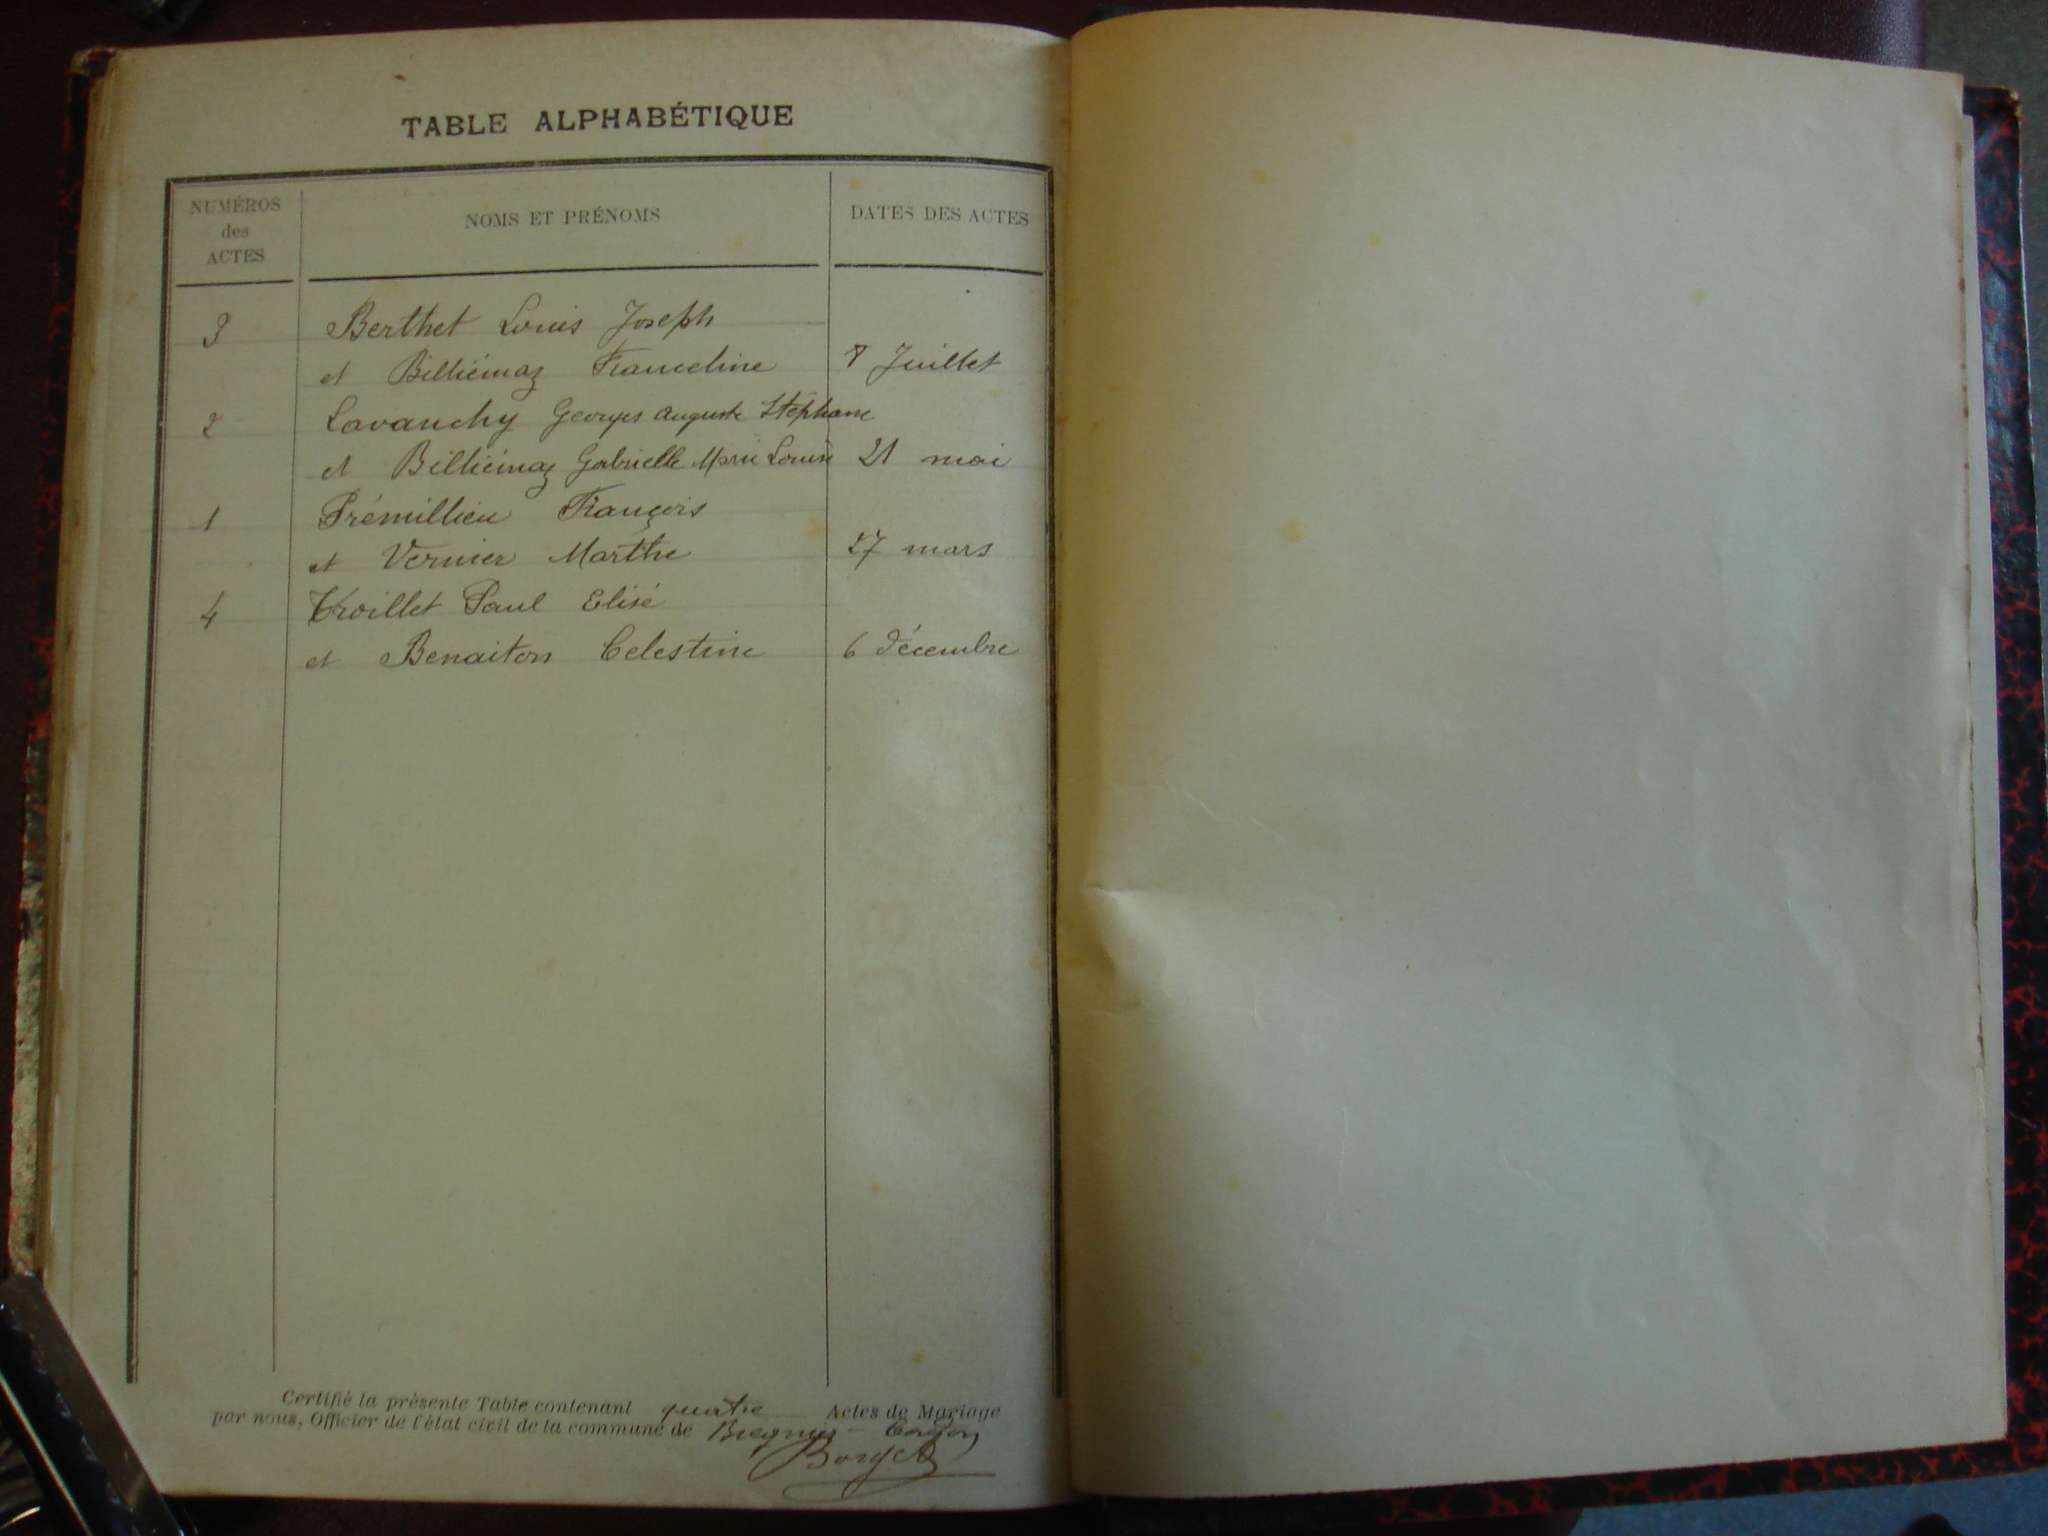 TABLE ALPHABÉTIQUE
NUMÉROS des ACTES NOMS ET PRÉNOMS DATES DES ACTES
3 Berthet Louis Joseph
et Billiémaz Franceline 8 Juillet
2 Lavanchy Georges Auguste Stéphane
et Billiémaz Gabrielle Marie Louise 21 mai
1 Prémillieu François
et Vernier Marthe 27 mars
4 Troillet Paul Elisé
et Benaiton Celestine 6 décembre
Certifié la présente Table contenant quatre Actes de Mariage
par nous, Officier de l'état civil de la commune de Bregnier - Cordon